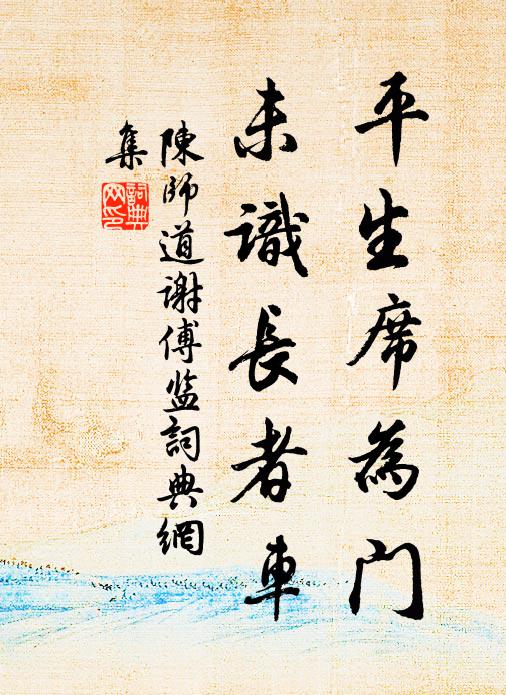 平生席為门
未識長者車
陳師道謝傅监詞典網
集
詞典网印